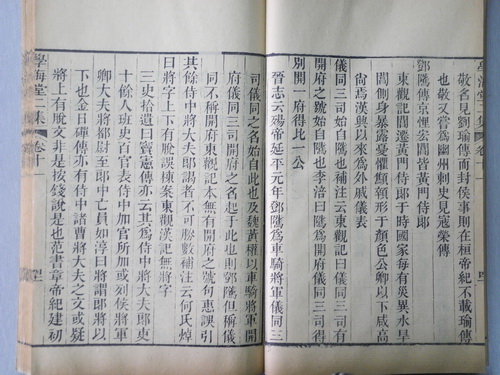 敬名見劉瑜傳而封侯事則在桓帝紀不載瑜傳
也敬又嘗為幽州刺史見寇榮傳
鄧隲傳京悝宏閶皆黃門侍郎
東觀記閶遷黃門侍郎于時國家每有災異水旱
閶側身暴露憂懼顦顇形于顏色公卿以下咸高
尚焉漢興以來為外戚儀表
儀同三司始自隲也補注云東觀記曰儀同三司有
開府之號始自隲也李涪曰隲為開府儀同三司得
別開一府得比一公
晉志云殤帝延平元年鄧隲為車騎將軍儀同三
司儀同之名始自此也及魏黃權以車騎將軍開
府儀同三司開府之名起于此也則鄧隲但稱儀
同不稱開府東觀記本無有開府之號句惠誤引
其餘侍中將大夫郎謁者不可勝數補注云何氏焯
曰將字上下有脫誤棟案東觀漢記無將字
三史拾遺曰竇憲傳亦云其為侍中將大夫郎吏
十餘人班史百官表侍中加官所加或列侯將軍
卿大夫將都尉至郎中亡員如淳曰將謂郎將以
下也金日磾傳亦有侍中諸曹將大夫之文或疑
將上有脫文非是按錢說是也范書章帝紀建初
學海堂二集 卷十一